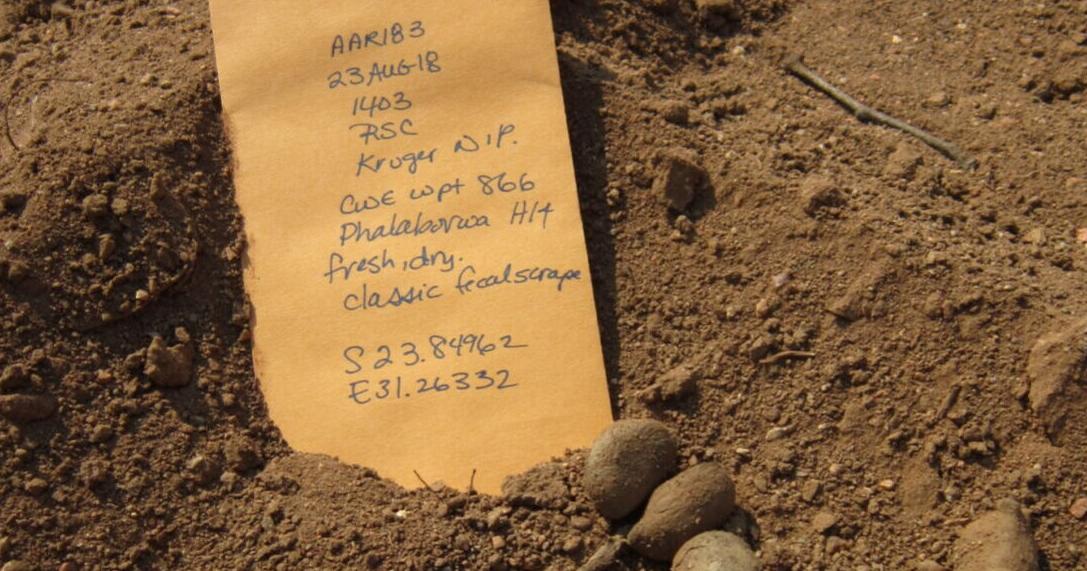 AAR183
23AUG18
1403
RSC
Kruger N.P.
CWE wpt 866
Phalaborwa H14
fresh, dry.
classic fecal scrape
S 23.84962
E31.26332